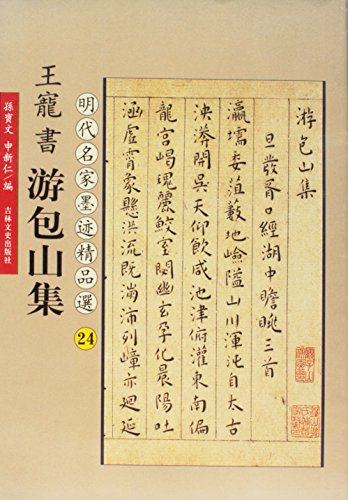 游包山集
旦發胥口經湖中瞻眺三首
瀛壖委菹藪地嶮隘山川渾沌自太古
泱漭開吳天仰飲咸池津俯灌東南偏
龍宮嵑瑰麗鮫室閟幽玄孕化晨陽吐
涵虛霄象懸洪流既滿沛列嶂亦迴延
明代名家墨迹精品選 24
王寵書 游包山集
孫寳文 申新仁/編
吉林文史出版社